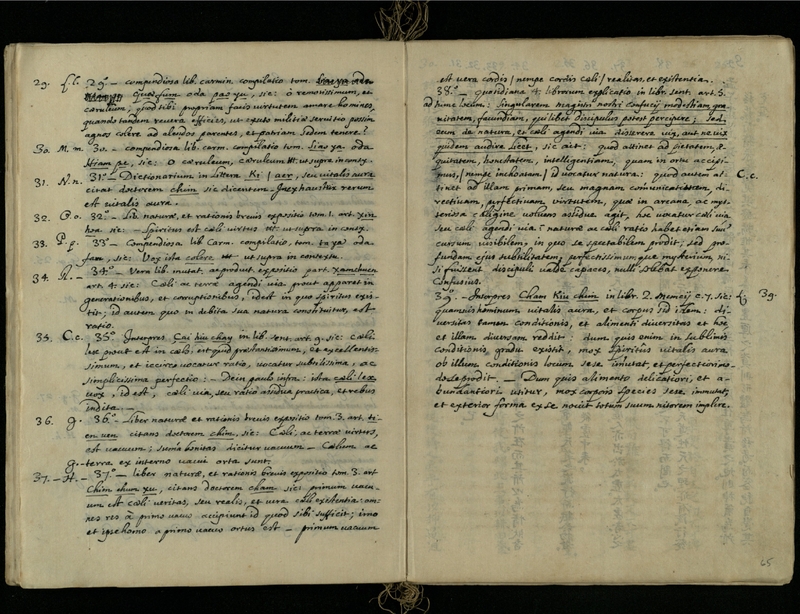 29. fl. 29.º – compendiosa lib. carmin. compilatio tom.
oda pas yu, sic: ô remotissimum, et
cæruleum, quod sibi propriam facis virtutem amare homines,
quandotandem revera efficies, ut exuto militiæ servitio possim
agnos colere ad alendos parentes, et patriam sedem tenere?
30. M. m. 30.– compendiosa lib. carm. compilatio tom. Siao ya. oda
Hiam pe, sic: O cæruleum, cæruleum ut supra in contx.
31. N. n. 31.º– Dictionarium in littera Ki / aer, seu vitalis aura
citat doctorem chum sic dicentem – Inexhaustix rerum
est vitalis aura.
32. O. o. 32.º– Lib. naturæ, et rationis brevis expositio tom. 1. art. xin
hoa sic: – Spiritus est cæli virtus ut supra in contx.
33. P. p. 33º– Compendiosa lib. Carm. compilatio, tom. ta ya oda
fan, sic: Vox ista colere ut supra in contextu.
34. 34.º– Vera lib. mutat. ac produt. expositio part. xamchuen
art. 4. sic: Cæli ac terræ agendi via prout apparet in
generationibus, et corruptionibus, idest in quo spiritus exis-
tit; id autem quo in debita sua natura constituitur, est
ratio.
35. C. c. 35º. Interpres Cai kiu chay in lib. sent. art. 9. sic: cæli
lex prout est in cælo, est quid præstantissimum, et excellentis-
simum, et iccirco vocatur ratio, vocatur subtilissima, ac
simplicissima perfectio: – Dein paulo infra: ista cæli lex
, id est, cæli via, seu ratio assidua practica, et rebus
indita. –
36. g. 36.º– Liber naturæ, et rationis brevis expositio tom. 3. art. ti-
en ven citans doctorem chim, sic: Cæli, ac terræ virtus,
est vacuum; summa bonitas dicitur vacuum – Cælum ac
g. terra ex interno vacui orta sunt.
37.– H.– 37º– liber naturæ, et rationis brevis expositio tom. 3. art
Chim chum xu, citans doctorem cham sic: primum vacu-
um est cæli veritas, seu realis, et vera cæli existentia: om-
nes res a primo vacuo accipiunt id quod sibi sufficit; imo
et ipse homo a primo vacuo ortus est – primum vacuum
est vera cordis / nempe cordis cæli / realitas, et existentia.
38.º– quotidiana 4. librorum explicatio in libr. sent. art. 5.
ad hunc locum: Singularem magistri nostri Confucij modestiam, gra-
vitatem, facundiam, quilibet discipulus potest percipere; sed
eum de natura, et cæli agendi via disserere vix, aut ne vix
quidem audire licet, sic ait: quod attinet ad pietatem, æ-
quitatem, honestatem, intelligentiam, quam in ortu accipi-
mus, / nempe inchoatam / id vocatur natura: quod autem at- C. c.
tinet ad illam primam, seu magnam comunicativam, di-
rectivam, perfectivam virtutem, quæ in arcana, ac mys-
teriosa caligine volvens assidue agit, hoc vocatur cæli via
seu cæli agendi via: naturæ ac cæli ratio habet etiam suum
cursum visibilem, in quo se spectabilem prodit; sed pro-
fundam ejus subtilitatem, perfectissimumque mysterium, ni-
si fuissent discipuli valde capaces, nulli solebat exponere
Confusius.
39.º– Interpres Cham Kiu chim in libr. 2. Mencij c. 7. sic: 39.
quamvis hominum vitalis aura, et corpus sid idem: di-
versitas tamen conditionis, et alimenti diversitas et hoc
et illam diversam reddit: dum quis enim in sublimis
conditionis gradu existit, mox spiritus vitalis aura
ob illum conditionis locum sese imutat, et perfectiorem
de se prodit. – Dum quis alimento delicatiori, et a-
bundantiori utitur, mox corporis species sese immutat,
et exterior forma ex se novit totum suum nitorem implere.
65